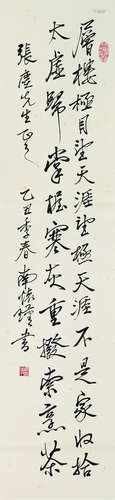 層樓極目望天涯望極天涯不是家收拾
太虛歸掌握寒灰重撥索烹茶
張塵先生正之
乙丑季春南懷瑾書